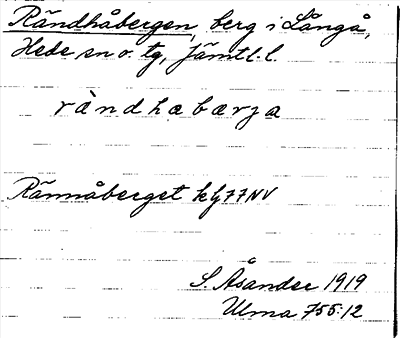 Rändhåbergen, berg i Långå,
Hede sn o. tg, Jämtl. l.
ràndhabærja
Rännåberget kbl 77NV
S. Åsander 1919
Ulma 755:12